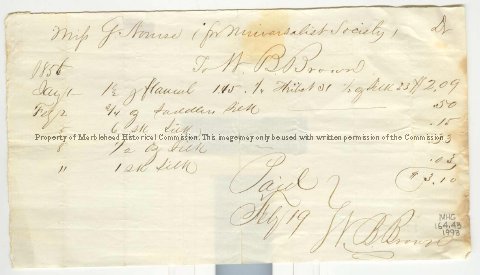 Miss G Nourse (for Universalist Society) Dr
1856 To W. B Brown
Jany 1 1½ y flannel 1.15 31 23 $2.09
Feby 2 2/4 y Silk .50
" 6 sk Silk .15
Property of Marblehead Historical Commission. This image may only be used with written permission of the Commission.
8 1/2 oz Silk
" 1 sk Silk .03
$3.10
Paid
Feby 19
W. B Brown
MHC
164.43
1993